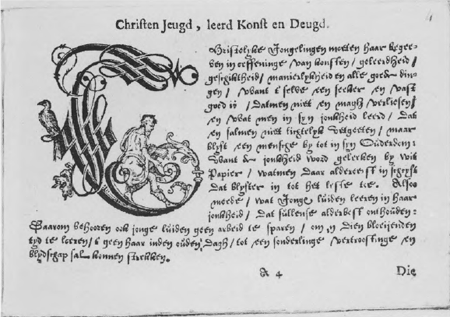 Christen Jeugd, leerd Konst en Deugd.
Christelyke Jongelingen moeten haar begee-
ven in oeffeninge van konsten / geleerdheid /
geschiktheid / manierlykheid en alle goede din-
gen / want t'selve een seeker en vast
goed is / datmen niet en magh verliesen /
en wat men in syn jonkheid leerd / dat
en salmen niet lichtelyk vergeeten / maar
blyft een mensche by tot in syn Ouderdom:
want de jonkheid word geleeken by wit
Papier / watmen daar alder eerst in schryft
dat blyfter in tot het leste toe. Alsoo
meede / wat Jonge lüiden leeren in Haar
jonkheid / dat füllense alderbest onthouden:
Daarom behooren ook jonge lüiden geen arbeid te sparen / om in dien bloeijenden
tyd te leeren / 't geen haar in den ouden dagh / tot een sonderlinge vertroostinge en
blydschap sal konnen strekken.
A 4
Die